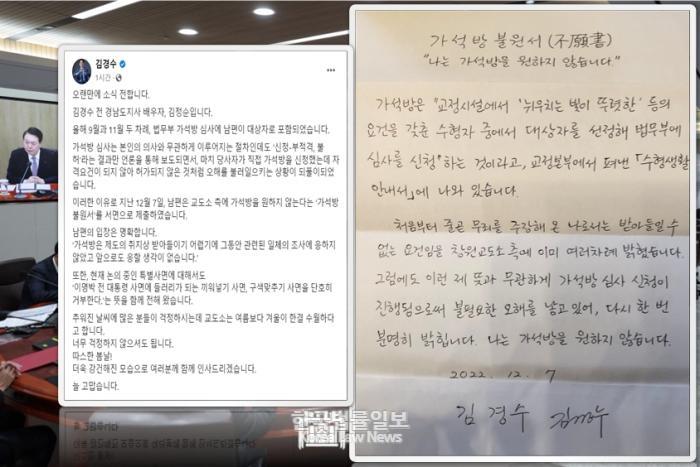 김경수
1시간
오랜만에 소식 전합니다.
김경수 전 경남도지사 배우자, 김정순입니다.
올해 9월과 11월 두 차례, 법무부 가석방 심사에 남편이 대상자로 포함되었습니다.
가석방 심사는 본인의 의사와 무관하게 이루어지는 절차인데도 '신청-부적격, 불
허'라는 결과만 언론을 통해 보도되면서, 마치 당사자가 직접 가석방을 신청했는데 자
격요건이 되지 않아 허가되지 않은 것처럼 오해를 불러일으키는 상황이 되풀이되었
습니다.
이러한 이유로 지난 12월 7일, 남편은 교도소 측에 가석방을 원하지 않는다는 '가석방
불원서'를 서면으로 제출하였습니다.
남편의 입장은 명확합니다.
'가석방은 제도의 취지상 받아들이기 어렵기에 그동안 관련된 일체의 조사에 응하지
않았고 앞으로도 응할 생각이 없습니다.'
또한, 현재 논의 중인 특별사면에 대해서도
'이명박 전 대통령 사면에 들러리가 되는 끼워넣기 사면, 구색맞추기 사면을 단호히
거부한다.'는 뜻을 함께 전해 왔습니다.
추워진 날씨에 많은 분들이 걱정하시는데 교도소는 여름보다 겨울이 한결 수월하다
고 합니다.
너무 걱정하지 않으셔도 됩니다.
따스한 봄날!
더욱 강건해진 모습으로 여러분께 함께 인사드리겠습니다.
늘 고맙습니다.
가석방 불원서 (不願書)
"나는 가석방을 원하지 않습니다."
가석방은 "교정시설에서 '뉘우치는 빛이 뚜렷한' 등의
요건을 갖춘 수형자 중에서 대상자를 선정해 법무부에
심사를 신청"하는 것이라고, 교정본부에서 펴낸 「수형생활
안내서」에 나와 있습니다.
처음부터 줄곧 무죄를 주장해 온 나로서는 받아들일 수
없는 요건임을 창원교도소 측에 이미 여러차례 밝혔습니다.
그럼에도 이런 제 뜻과 무관하게 가석방 심사 신청이
진행됨으로써 불필요한 오해를 낳고 있어, 다시 한 번
분명히 밝힙니다. 나는 가석방을 원하지 않습니다.
2022. 12. 7
김 경 수
한국법률일보
Korea Law News